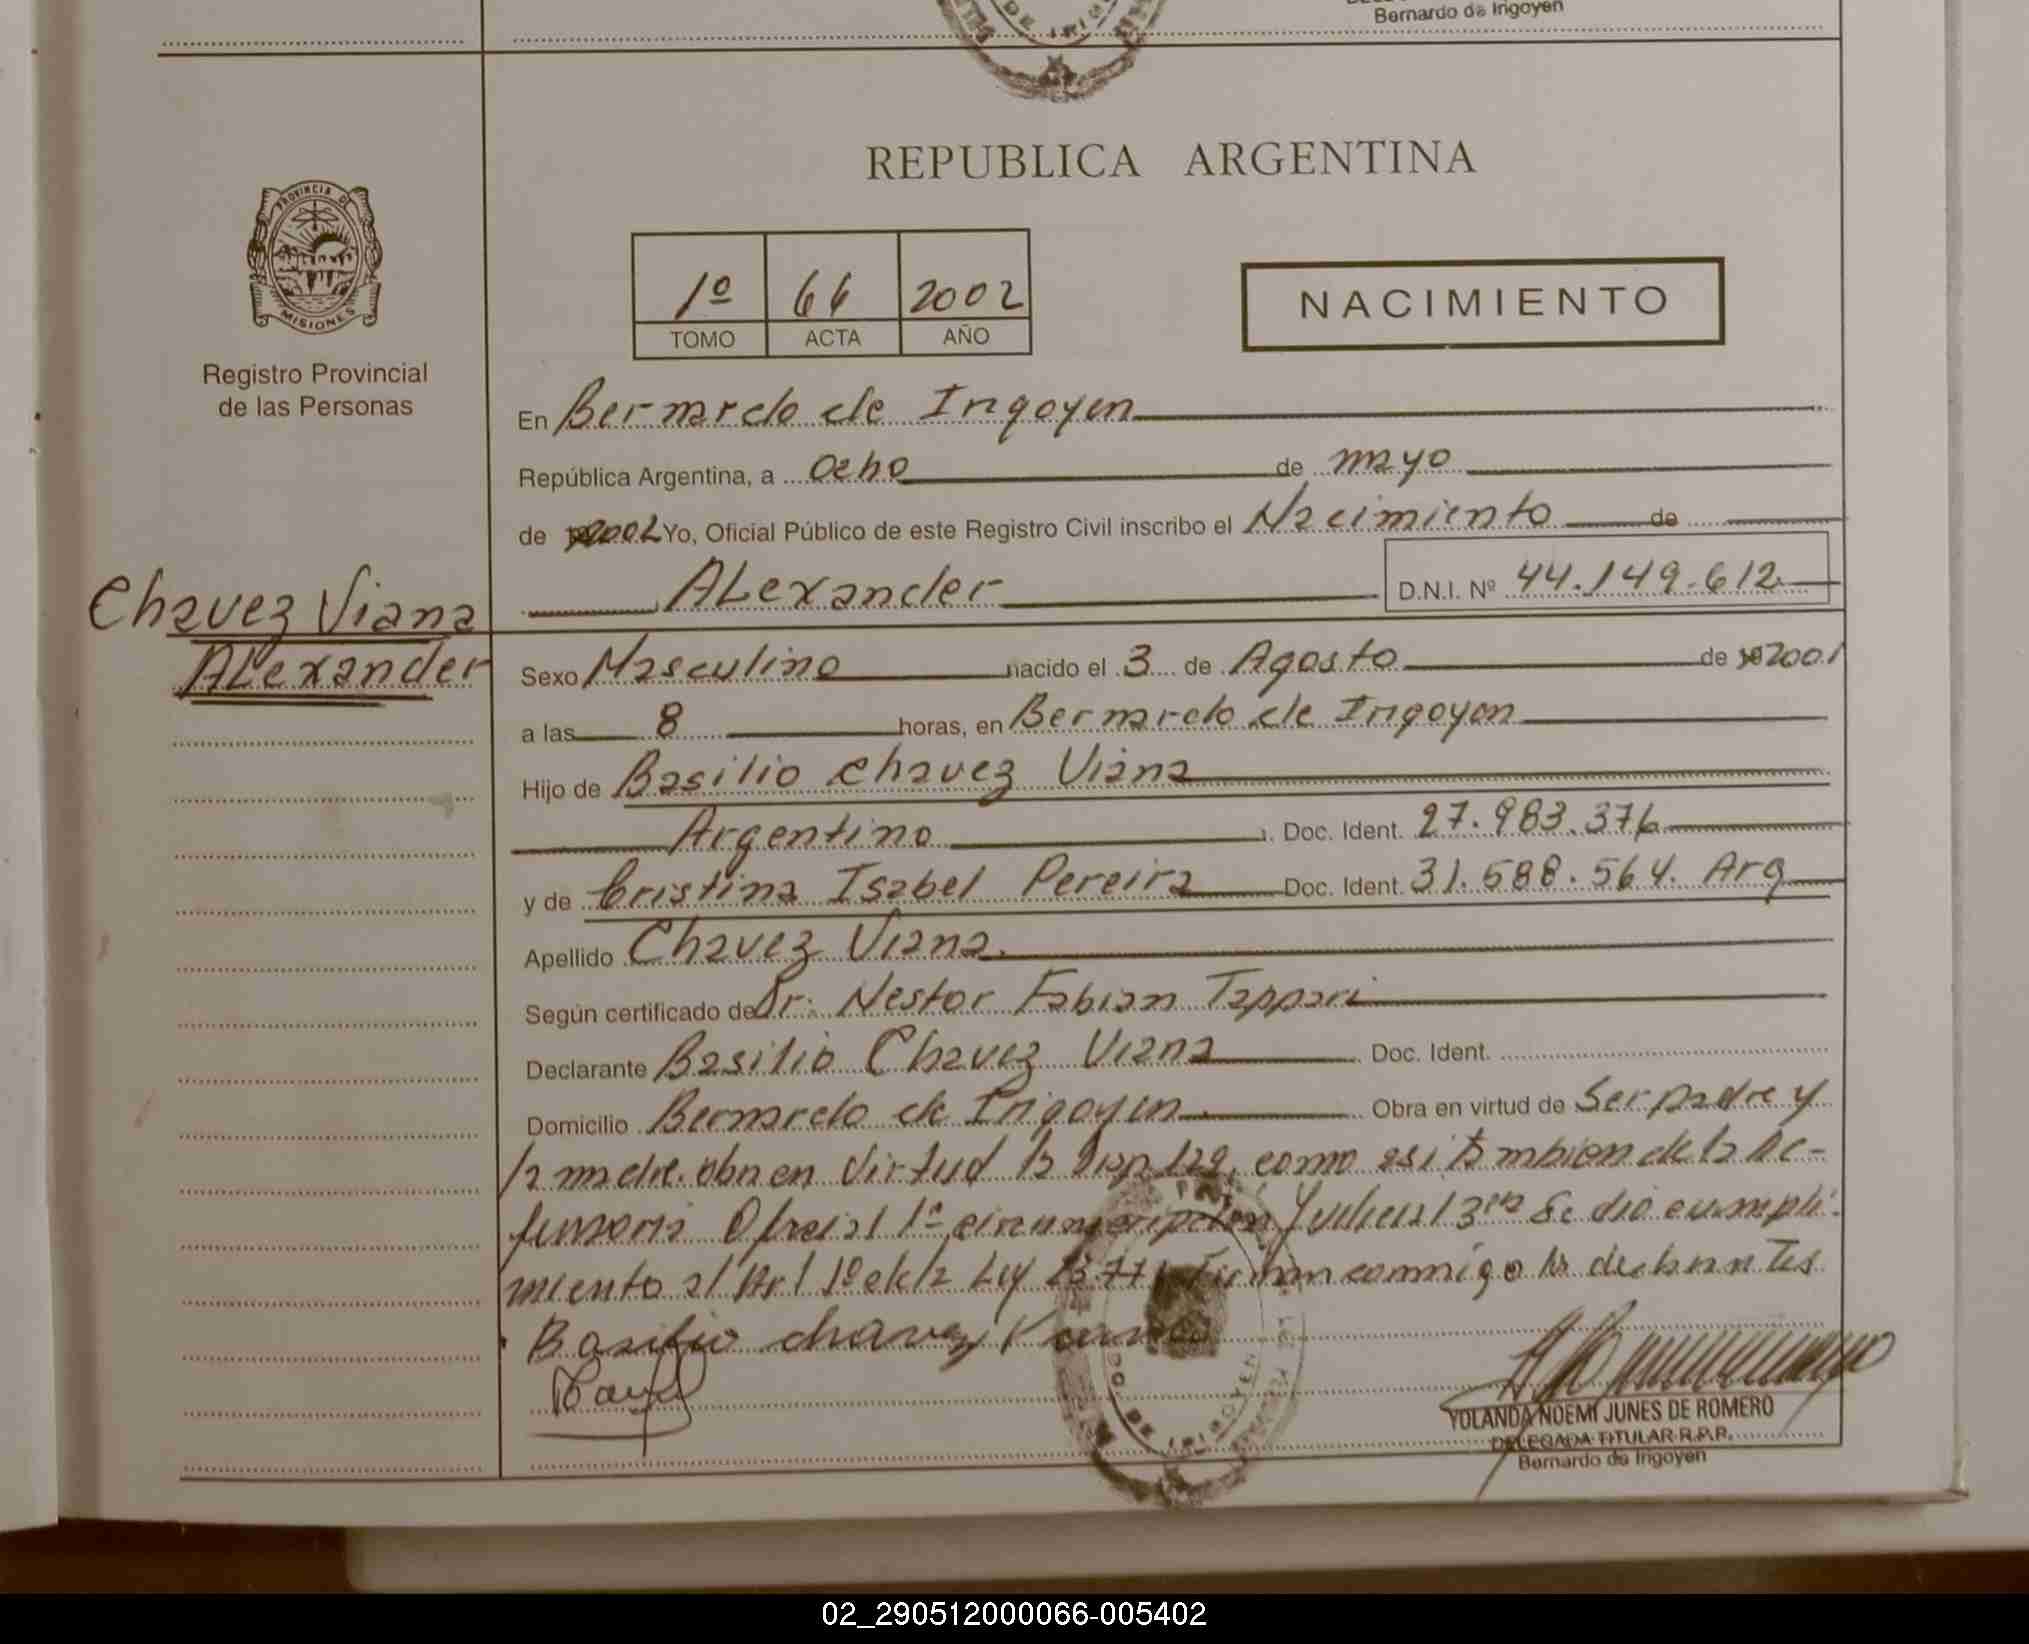 Bernardo de Irigoyen
DE IRIGOYEN
REPUBLICA ARGENTINA
PROVINCIA DE
MISIONES
Registro Provincial
de las Personas
1º 66 2002
TOMO ACTA AÑO
NACIMIENTO
En Bernardo de Irigoyen
República Argentina, a ocho de mayo
de 2002 Yo, Oficial Público de este Registro Civil inscribo el Nacimiento de
Alexander D.N.I. Nº 44.149.612
Chavez Viana
Alexander
Sexo Masculino nacido el 3 de Agosto de 2001
a las 8 horas, en Bernardo de Irigoyen
Hijo de Basilio Chavez Viana
Argentino Doc. Ident. 27.983.376
y de Cristina Isabel Pereira Doc. Ident. 31.588.564. Arg
Apellido Chavez Viana.
Según certificado de Dr. Nestor Fabian Tappari
Declarante Basilio Chavez Viana Doc. Ident.
Domicilio Bernardo de Irigoyen Obra en virtud de Ser padre y
la madre. obra en virtud la como asi tambien de la De-
fensoria Oficial 1ª circunscripcion Judicial 3ra Se dio cumpli-
miento al Art 1º de la Ley Firman conmigo los declarantes
Basilio chavez Viana
DE IRIGOYEN
YOLANDA NOEMI JUNES DE ROMERO
DELEGADA TITULAR R.P.P.
Bernardo de Irigoyen
02_290512000066-005402